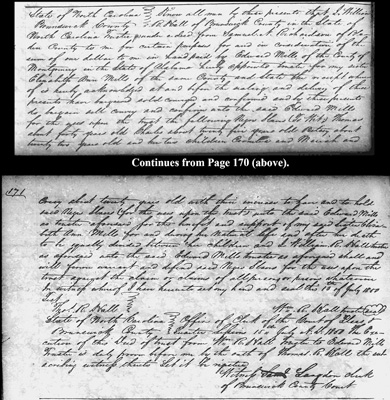 State of North Carolina } Know all men by these presents that I William
Brunswick County } R Hall of Brunswick County in the State of
North Carolina Trustee under a deed from Samuel R. Richardson of
County to me for certain purposes for and in consideration of the
sum of one dollar to me in hand paid by Edward Mills of the County of
Montgomery and State of Alabama lately appointed trustee for
Elizabeth Ann Mills of the same County and State the receipt whereof
is hereby acknowledged at and before the sealing and delivery of these
presents have bargained sold conveyed and confirmed and by these presents
do bargain sell convey and confirm unto the said Edward Mills
for the uses upon the trust the following Negro Slaves (To Wit) Thomas
about forty years old Charles about twenty five years old Betsey about
twenty two years old and her two children and Mariah and
Continues from Page 170 (above).
171
about twenty years old with their increase to have and to hold
said Negro Slaves for the uses upon the trusts unto the said Edward Mills
as trustee aforesaid for the benefit and support of my Elizabeth
Ann Mills for and during her natural life and after her death
to be equally divided between her children and I William R. Hall trustee
as aforesaid unto the said Edward Mills trustee as aforesaid shall and
will forever warrant and defend said Negro Slaves for the uses upon the
trusts against the claims of all persons whatsoever
In witness whereof I have hereunto set my hand and seal this 10th of July 1850
Test
Thos. R. Hall Wm. R. Hall trustee (seal)
State of North Carolina } Office of Clerk of the County Court
Brunswick County } July A.D. 1850 The Exe
cution of this Deed of trust from Wm R. Hall Trustee to Edward Mills
Trustee is duly proven before me by the oath of Thomas R. Hall the sub
scribing witness thereto Let it be registered
Langdon clerk
of Brunswick County Court